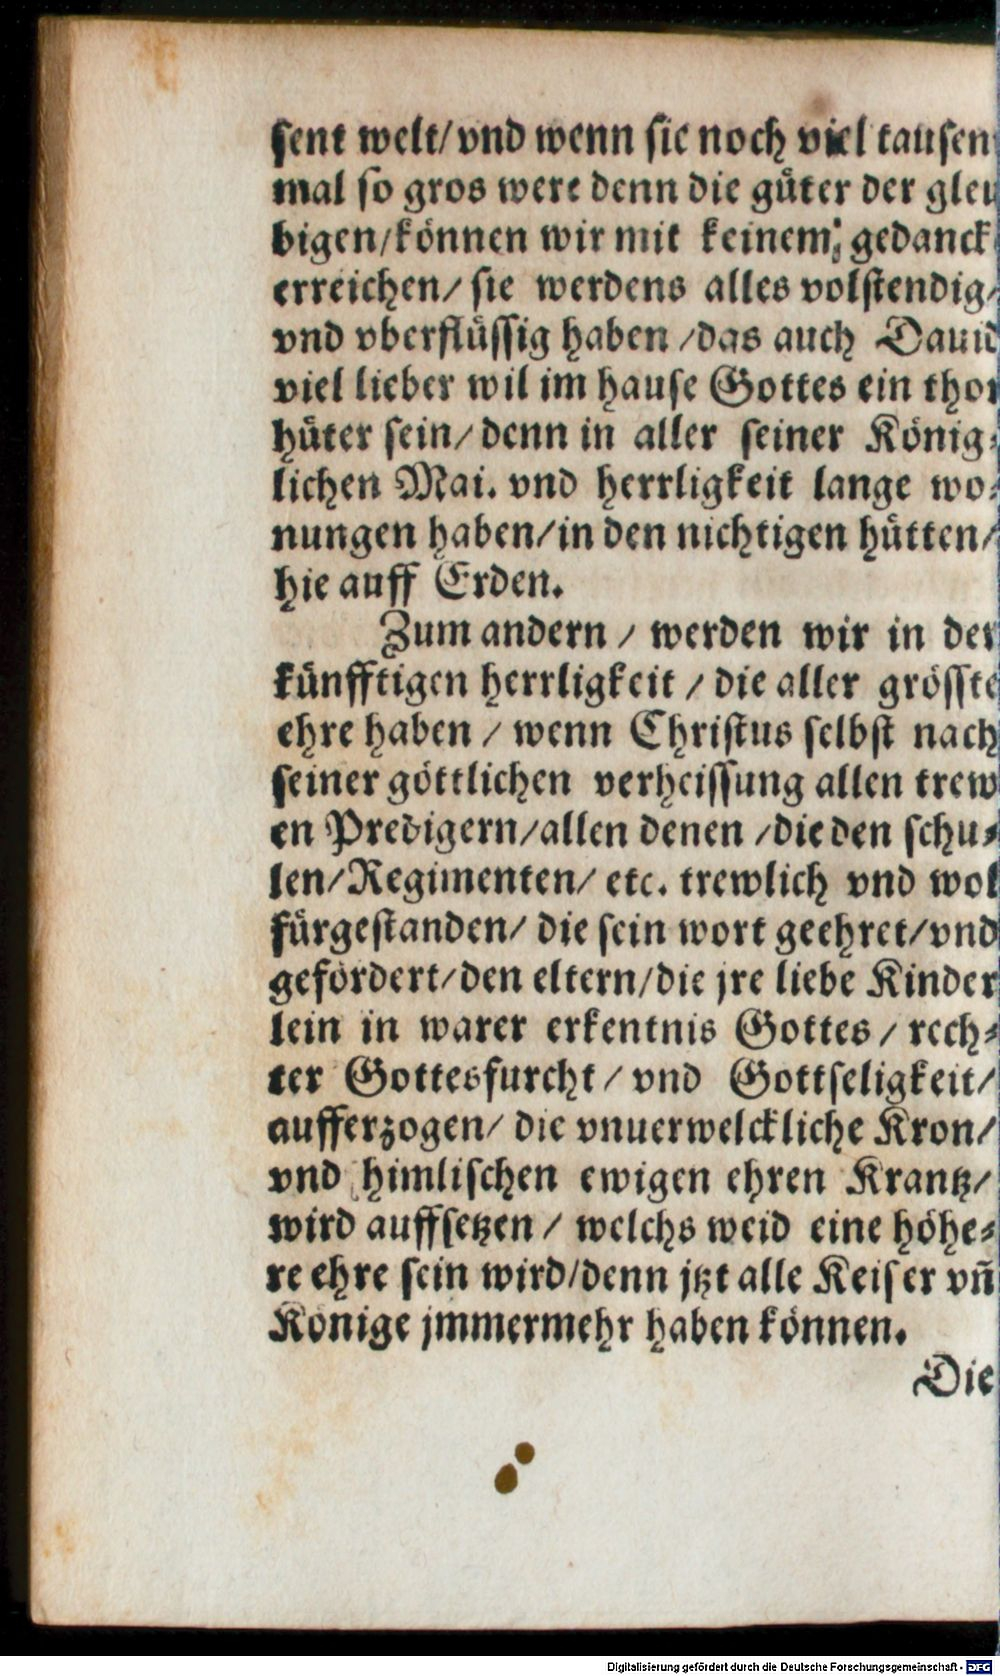 sent welt/vnd wenn sie noch viel tausen
mal so gros were denn die güter der gleu
bigen/können wir mit keinem gedanck
erreichen/ sie werdens alles volstendig/
vnd vberflüssig haben /das auch Dauid
viel lieber wil im hause Gottes ein thor
hüter sein/ denn in aller seiner König⸗
lichen Mai. vnd herrligkeit lange wo⸗
nungen haben/in den nichtigen hütten/
hie auff Erden.
Zum andern / werden wir in der
künfftigen herrligkeit / die aller grösste
ehre haben / wenn Christus selbst nach
seiner göttlichen verheissung allen trew
en Predigern/allen denen /die den schu⸗
len/Regimenten/ etc. trewlich vnd wol
fürgestanden/ die sein wort geehret/vnd
gefördert/den eltern/die jre liebe Kinder
lein in warer erkentnis Gottes / rech⸗
ter Gottesfurcht / vnd Gottseligkeit/
aufferzogen/ die vnuerwelckliche Kron/
vnd himlischen ewigen ehren Krantz/
wird auffsetzen / welchs weid eine höhe⸗
re ehre sein wird/denn jtzt alle Keiser vn̄
Könige jmmermehr haben können.
Die
Digitalisierung gefördert durch die Deutsche Forschungsgemeinschaft - DFG